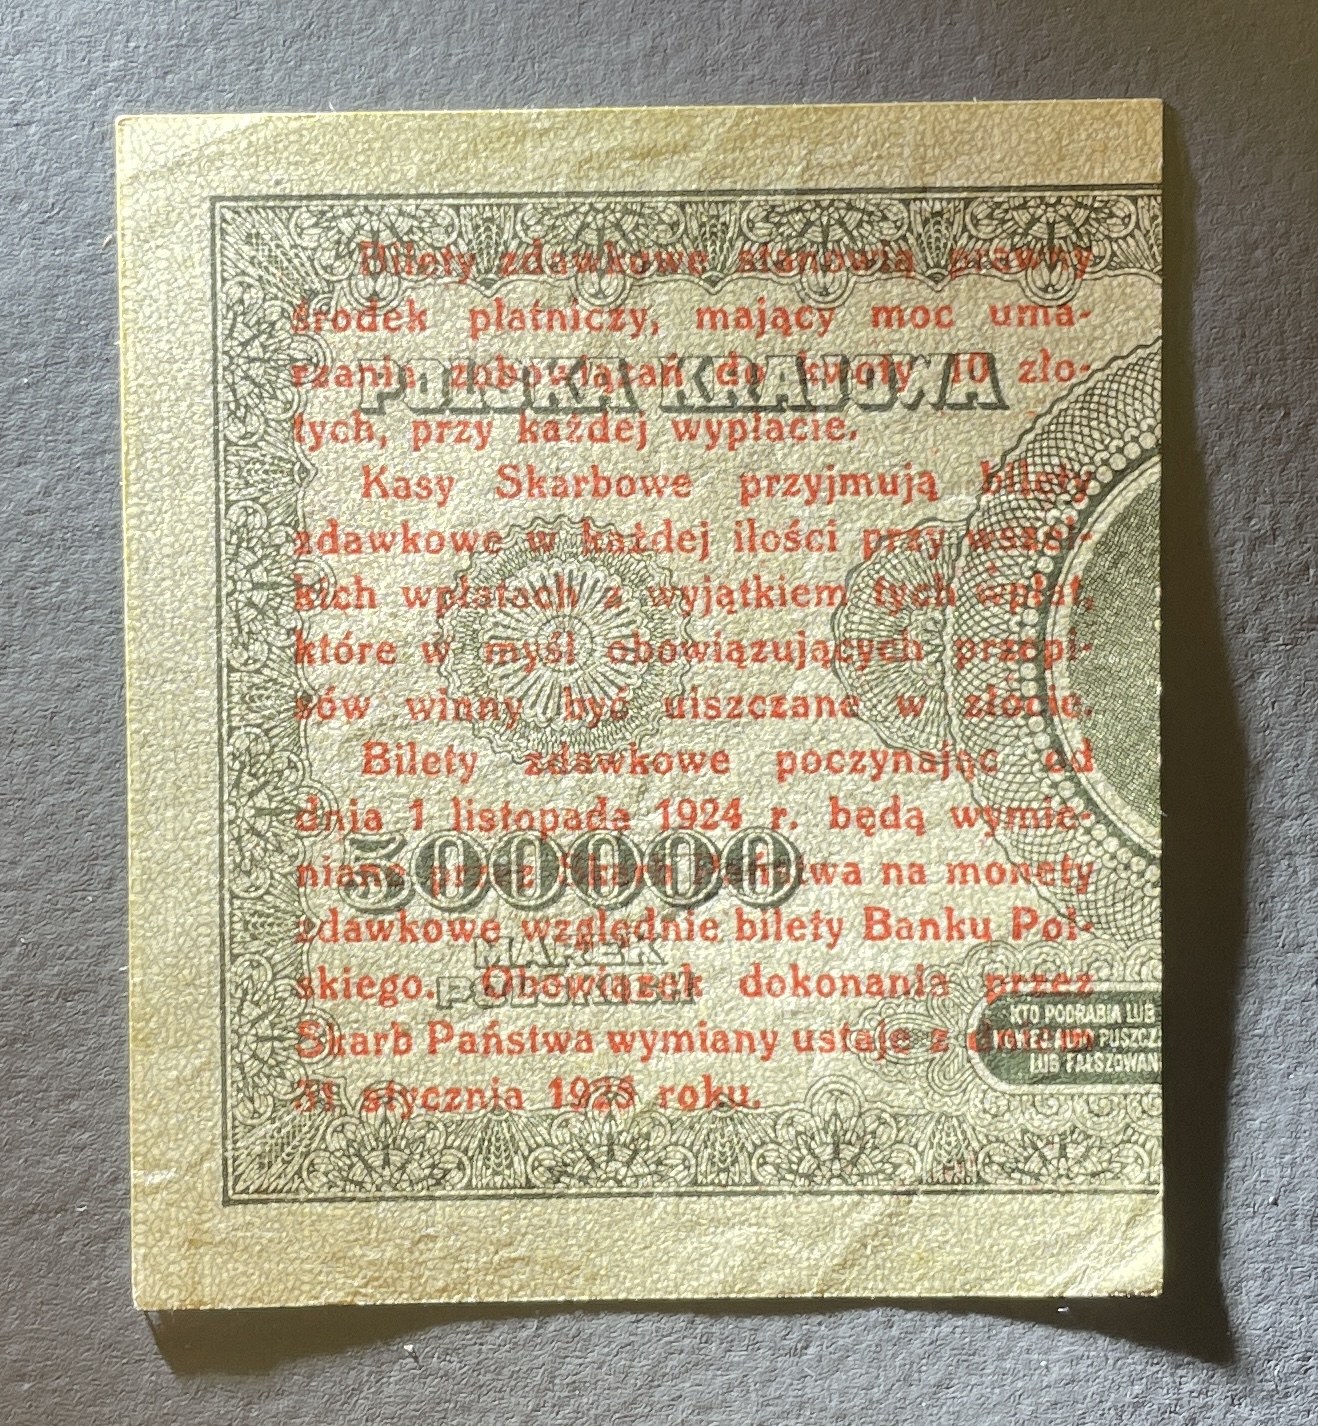 Bilety zdawkowe stanowią prawny
środek płatniczy, mający moc uma-
rzania zobowiązań do kwoty 10 zło-
tych, przy każdej wypłacie.
POLSKA KRAJOWA
Kasy Skarbowe przyjmują bilety
zdawkowe w każdej ilości przy wszel-
kich wpłatach z wyjątkiem tych wpłat,
które w myśl obowiązujących przepi-
sów winny być uiszczane w złocie.
Bilety zdawkowe poczynając od
dnia 1 listopada 1924 r. będą wymie-
niane przez Skarb Państwa na monety
zdawkowe względnie bilety Banku Pol-
skiego. Obowiązek dokonania przez
Skarb Państwa wymiany ustaje z dniem
31 stycznia 1925 roku.
500000
MAREK
POLSKICH
KTO PODRABIA LUB
PUSZCZA
LUB FAŁSZOWAN